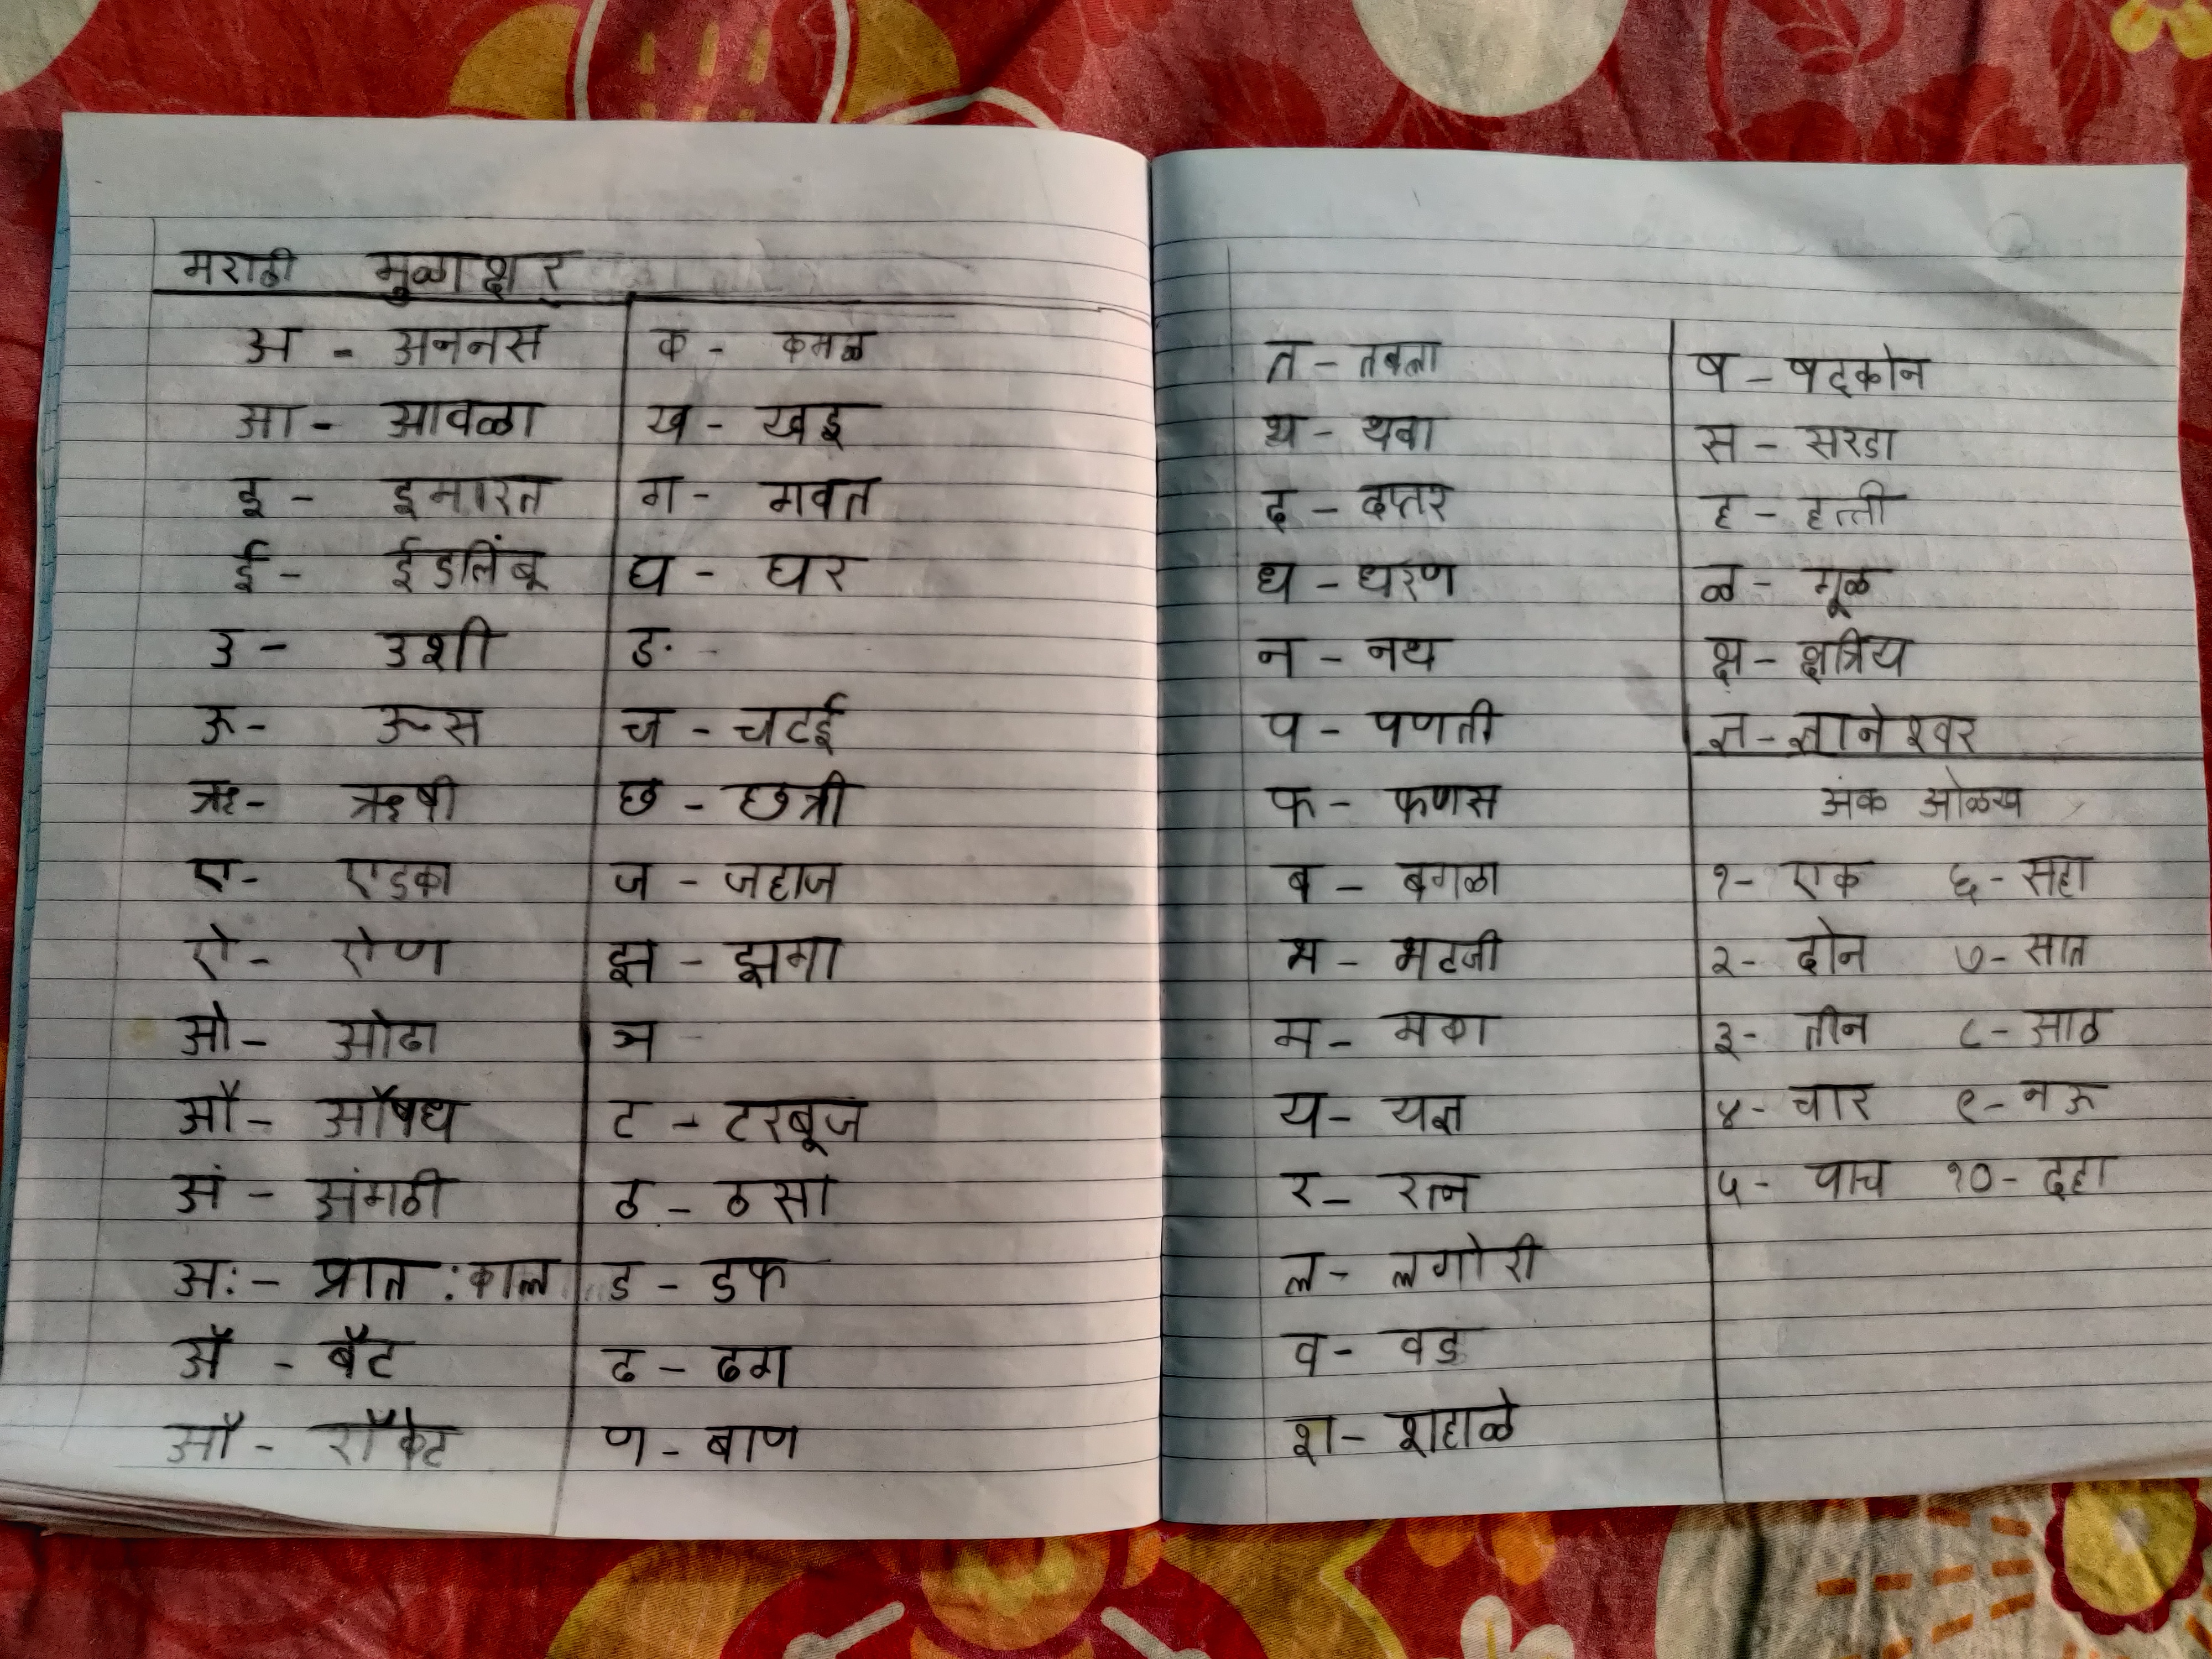 मराठी मुळाक्षर
अ - अननस
आ - आवळा
इ - इमारत
ई - ईडलिंबू
उ - उशी
ऊ - ऊस
ऋ - ऋषी
ए - एडका
ऐ - ऐण
ओ - ओढा
औ - औषध
अं - अंगठी
अः - प्रात:काल
ॲ - बॅट
ऑ - रॉकेट
क - कमळ
ख - खडू
ग - गवत
घ - घर
ङ -
च - चटई
छ - छत्री
ज - जहाज
झ - झगा
ञ -
ट - टरबूज
ठ - ठसा
ड - डफ
ढ - ढग
ण - बाण
त - तबला
थ - थवा
द - दप्तर
ध - धरण
न - नथ
प - पणती
फ - फणस
ब - बगळा
भ - भटजी
म - मका
य - यज्ञ
र - रत्न
ल - लगोरी
व - वड
श - शहाळे
ष - षट्कोन
स - सरडा
ह - हत्ती
ळ - मूळ
क्ष - क्षत्रिय
ज्ञ - ज्ञानेश्वर
अंक ओळख
१- एक ६- सहा
२- दोन ७- सात
३- तीन ८- आठ
४- चार ९- नऊ
५- पाच १०- दहा